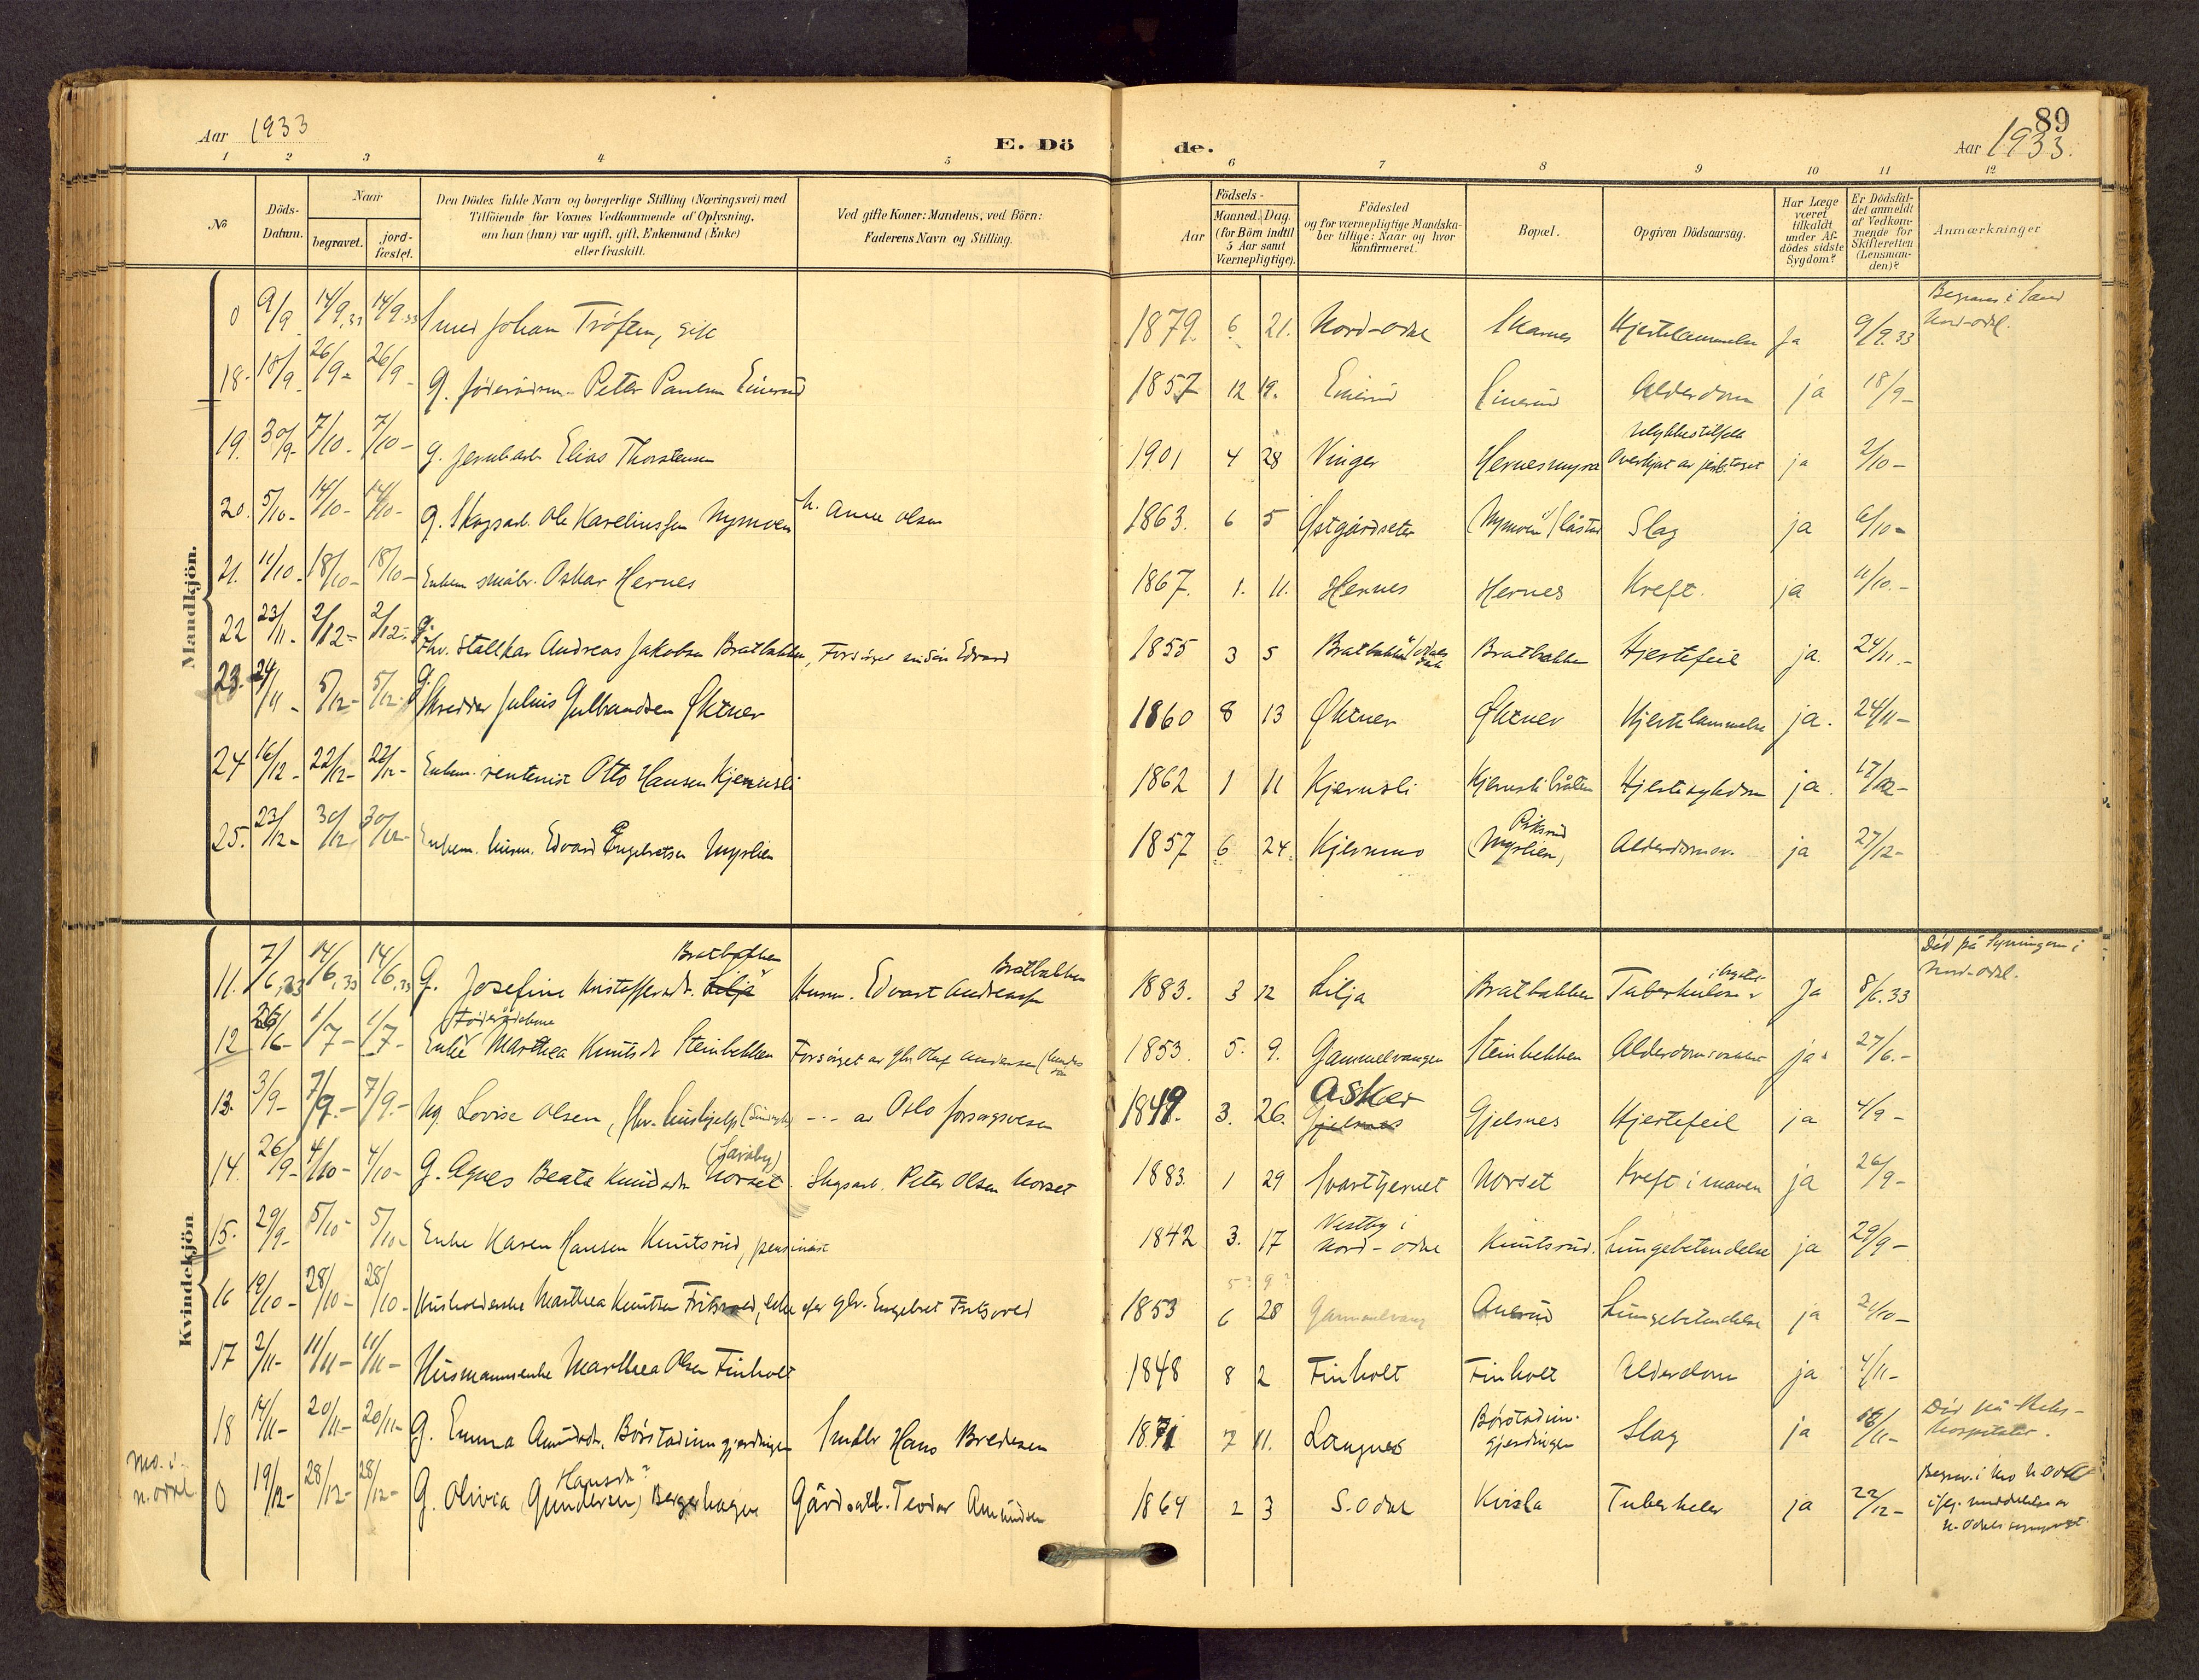 89
Aar 1933
E. Döde.
Aar 1933.
1 2 3 4 5 6 7 8 9 10 11 12
No
Döds-Datum.
Naar
begravet.
jordfæstet.
Den Dödes fulde Navn og borgerlige Stilling (Næringsvei) med
Tilföiende for Voxnes Vedkommende af Oplysning,
om han (hun) var ugift, gift, Enkemand (Enke)
eller fraskilt.
Ved gifte Koner: Mandens, ved Börn:
Faderens Navn og Stilling.
Födsels-
Aar
Maaned. Dag.
(for Börn indtil
5 Aar samt
Værnepligtige).
Födested
og for værnepligtige Mandska-
ber tillige: Naar og hvor
Konfirmeret.
Bopæl.
Opgiven Dödsaarsag.
Har Læge
været
tilkaldt
under Af-
dödes sidste
Sygdom?
Er Dödsfal-
det anmeldt
af Vedkom-
mende for
Skifteretten
(Lensman-
den)?
Anmærkninger
Mandkjön.
0 9/9 14/9.33 14/9.33 Smed Johan Tröften, gift 1879. 6 21. Nord-Odal Skarnes Hjertelammelse Ja 9/9.33 Nord-Odal.
18. 18/9 26/9- 26/9- G. föderådsm. Peter Paulsen Einerud 1857 12 19. Einerud Einerud Alderdom ja 18/9-
19. 30/9- 7/10- 7/10- g. jernbarb. Elias Thorstensen 1901 4 28 Vinger Hernesmyra Ulykkestilfelle Overkjørt av jernb.toget ja 2/10-
20. 5/10- 14/10- 14/10- g. Skogsarb. Ole Kareliussen Nymoen h. Anne Olsen 1863. 6 5 Østgårdseter Nymoen Slag ja 6/10-
21. 11/10- 18/10- 18/10- Enkem småbr. Oskar Hernes 1867. 1. 11. Hernes Hernes Kreft. ja 11/10.-
22 23/11- 2/12- 2/12- g. Fhv. Stallkar Andreas Jakobsen Bratbakken, Forsörget av sön Edvard 1855 3 5 Bratbakken Bratbakken Hjertefeil ja. 24/11.-
23. 24/11- 5/12- 5/12- g. Skredder Julius Gulbrandsen Øktner 1860 8 13 Øktner Øktner Hjertelammelse ja. 24/11-
24 16/12- 22/12- 22/12- Enkem. rentenist Otto Hansen Kjernsli 1862 1 11 Kjernsli Kjernslibråten Hjertesykdom ja. 17/12-
25. 23/12- 30/12 30/12- Enkem. husm. Edvard Engebretsen Myrlien 1857 6 24. Kjernmo Myrlien, Alderdomsv. ja 27/12-
Kvindekjön
11. 7/6.33 14/6.33 14/6.33 G. Josefine Kristoffersdtr. Lilja Bratbakken Husm. Edvart Andreassen Bratbakken 1883. 3 12 Lilja Bratbakken Tuberkulose Ja 8/6.33 Död på Nord-Odal.
12 26/6- 1/7- 1/7- Föderådskone Enke Marthea Knutsdt Steinbekken Forsörget av gbr. Olaf Andersen 1853. 5. 9. Gammelvangen Steinbekken Alderdomssvakhet ja 27/6.-
13. 3/9- 7/9.- 7/9.- Ug. Lovise Olsen, fhv. hushjelp --- av Oslo forsorgsvesen 1849. 3. 26. Asker Gjelsnes Gjelsnes Hjertefeil ja 4/9-
14. 26/9- 4/10- 4/10- G. Agnes Beate Knudsdtr Norset Skogsarb. Peter Olsen Norset 1883. 1 29 Svarttjernet Norset Kreft i maven ja 26/9-
15. 29/9- 5/10- 5/10- Enke Karen Hansen Knutsrud, pensionist 1842 3. 17 Vestby i Nord-Odal Knutsrud. Lungebetendelse ja 29/9-
16 19/10- 28/10- 28/10- Husholderske Marthea Knutsen Fritsvold, enke efter gbr. Engebret Fritsvold 1853 5? 9? 6 28 Gammelvang Auerud Lungebetendelse ja 21/10-
17 2/11- 11/11- 11/11- Husmannsenke Marthea Olsen Finholt 1848 8 2 Finholt Finholt Alderdom ja 4/11-
18 14/11- 20/11- 20/11- G. Emma Amundsdtr. Börstadengjerdingen Småbr Hans Bredesen 1871 7 11. Laugnes Slag ja 16/11- Död på
Mo. i n. Odal 0 19/12- 28/12- 28/12- G. Olivia Gundersen, Hansdtr? Bergerhagen Gårdsarb. Teodor Amundsen 1864 2 3 S. Odal Kvisla Tuberkulose ja 22/12- Begrav. i Mo N. Odal